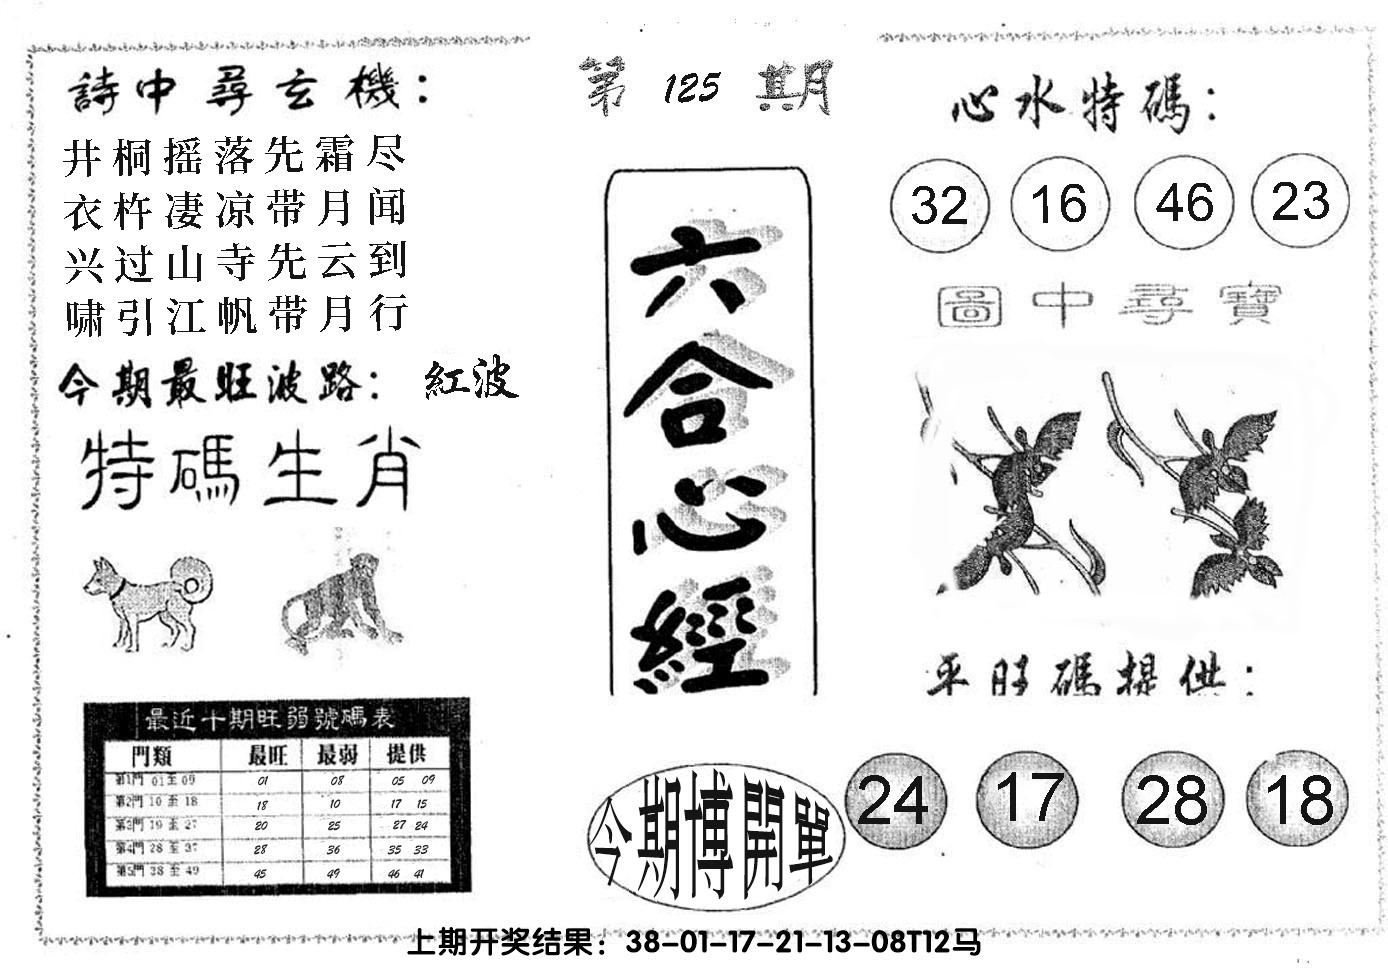 詩中尋玄機：
井桐摇落先霜尽
衣杵凄凉带月闻
兴过山寺先云到
啸引江帆带月行
今期最旺波路： 紅波
特碼生肖
最近十期旺弱號碼表
門類 最旺 最弱 提供
第1門 01至09 01 08 05 09
第2門 10至18 18 10 17 15
第3門 19至27 20 25 27 24
第4門 28至37 28 36 35 33
第5門 38至49 45 49 46 41
第 125 期
六合心經
今期博開單
心水特碼：
32 16 46 23
圖中尋寶
平旺碼提供：
24 17 28 18
上期开奖结果：38-01-17-21-13-08T12马